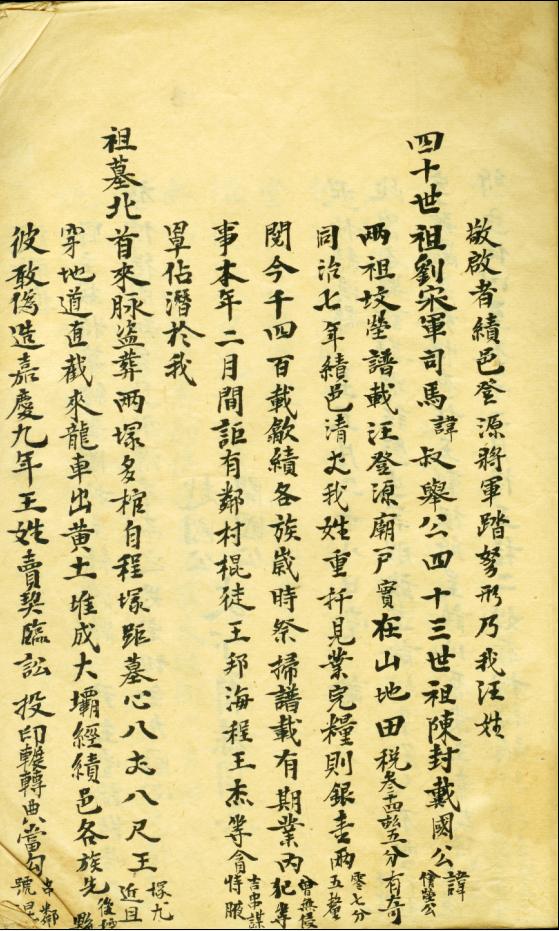 敬啟者績邑登源將軍踏弩形乃我汪姓
四十世祖劉宋軍司馬諱叔舉公四十三世祖陳封戴國公諱僧瑩公
兩祖墳塋譜載汪登源廟戶實在山地田稅叁十四畝五分有奇
同治七年績邑清丈我姓重扦見業完糧則銀壹兩零七分五釐
閱今千四百載歙績各族歲時祭掃譜載有期業內曾無侵犯等
事本年二月間詎有鄰村棍徒王邦海程王杰等貪吉串謀恃服
罩佔潛於我
祖墓北首來脉盜葬兩塚多棺自程塚距墓心八丈八尺王塚尤近且
穿地道直截來龍車出黃土堆成大壩經績邑各族先後
彼敢偽造嘉慶九年王姓賣契臨訟投印輾轉典當勾串鄰